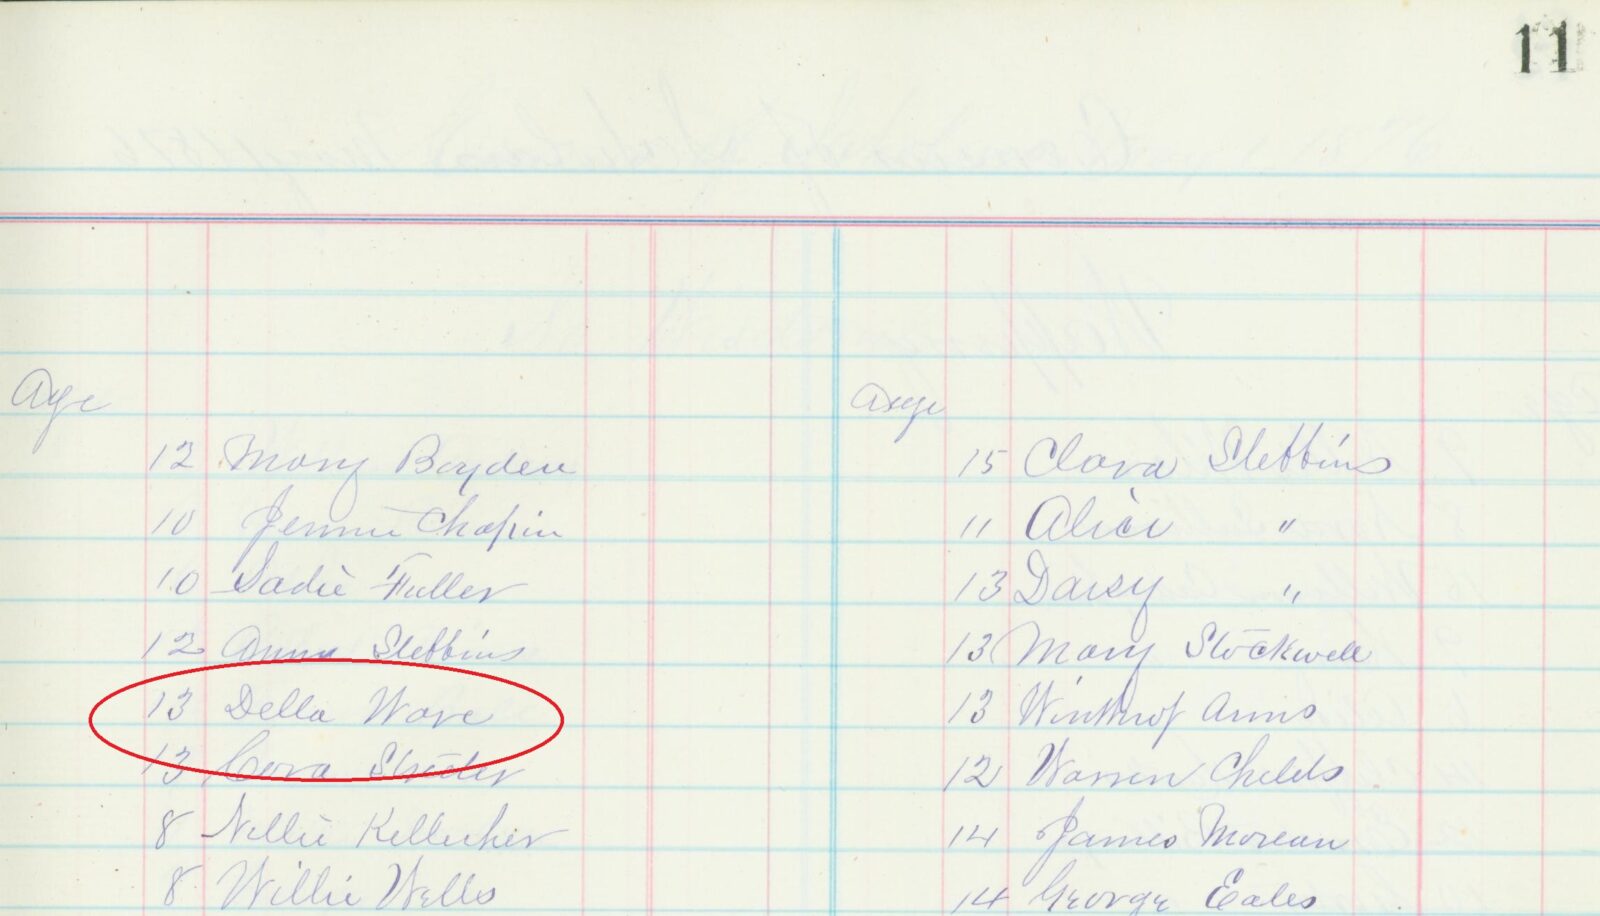 11
Age
12 Mary Boyden
10 Jennie Chapin
10 Sadie Fuller
12 Anna Stebbins
13 Della Ware
13 Cora Streeter
8 Nellie Kelleher
8 Willie Wells
Age
15 Clara Stebbins
11 Alice "
13 Daisy "
13 Mary Stockwell
13 Winthrop Arms
12 Warren Childs
14 James Moreau
14 George Eales